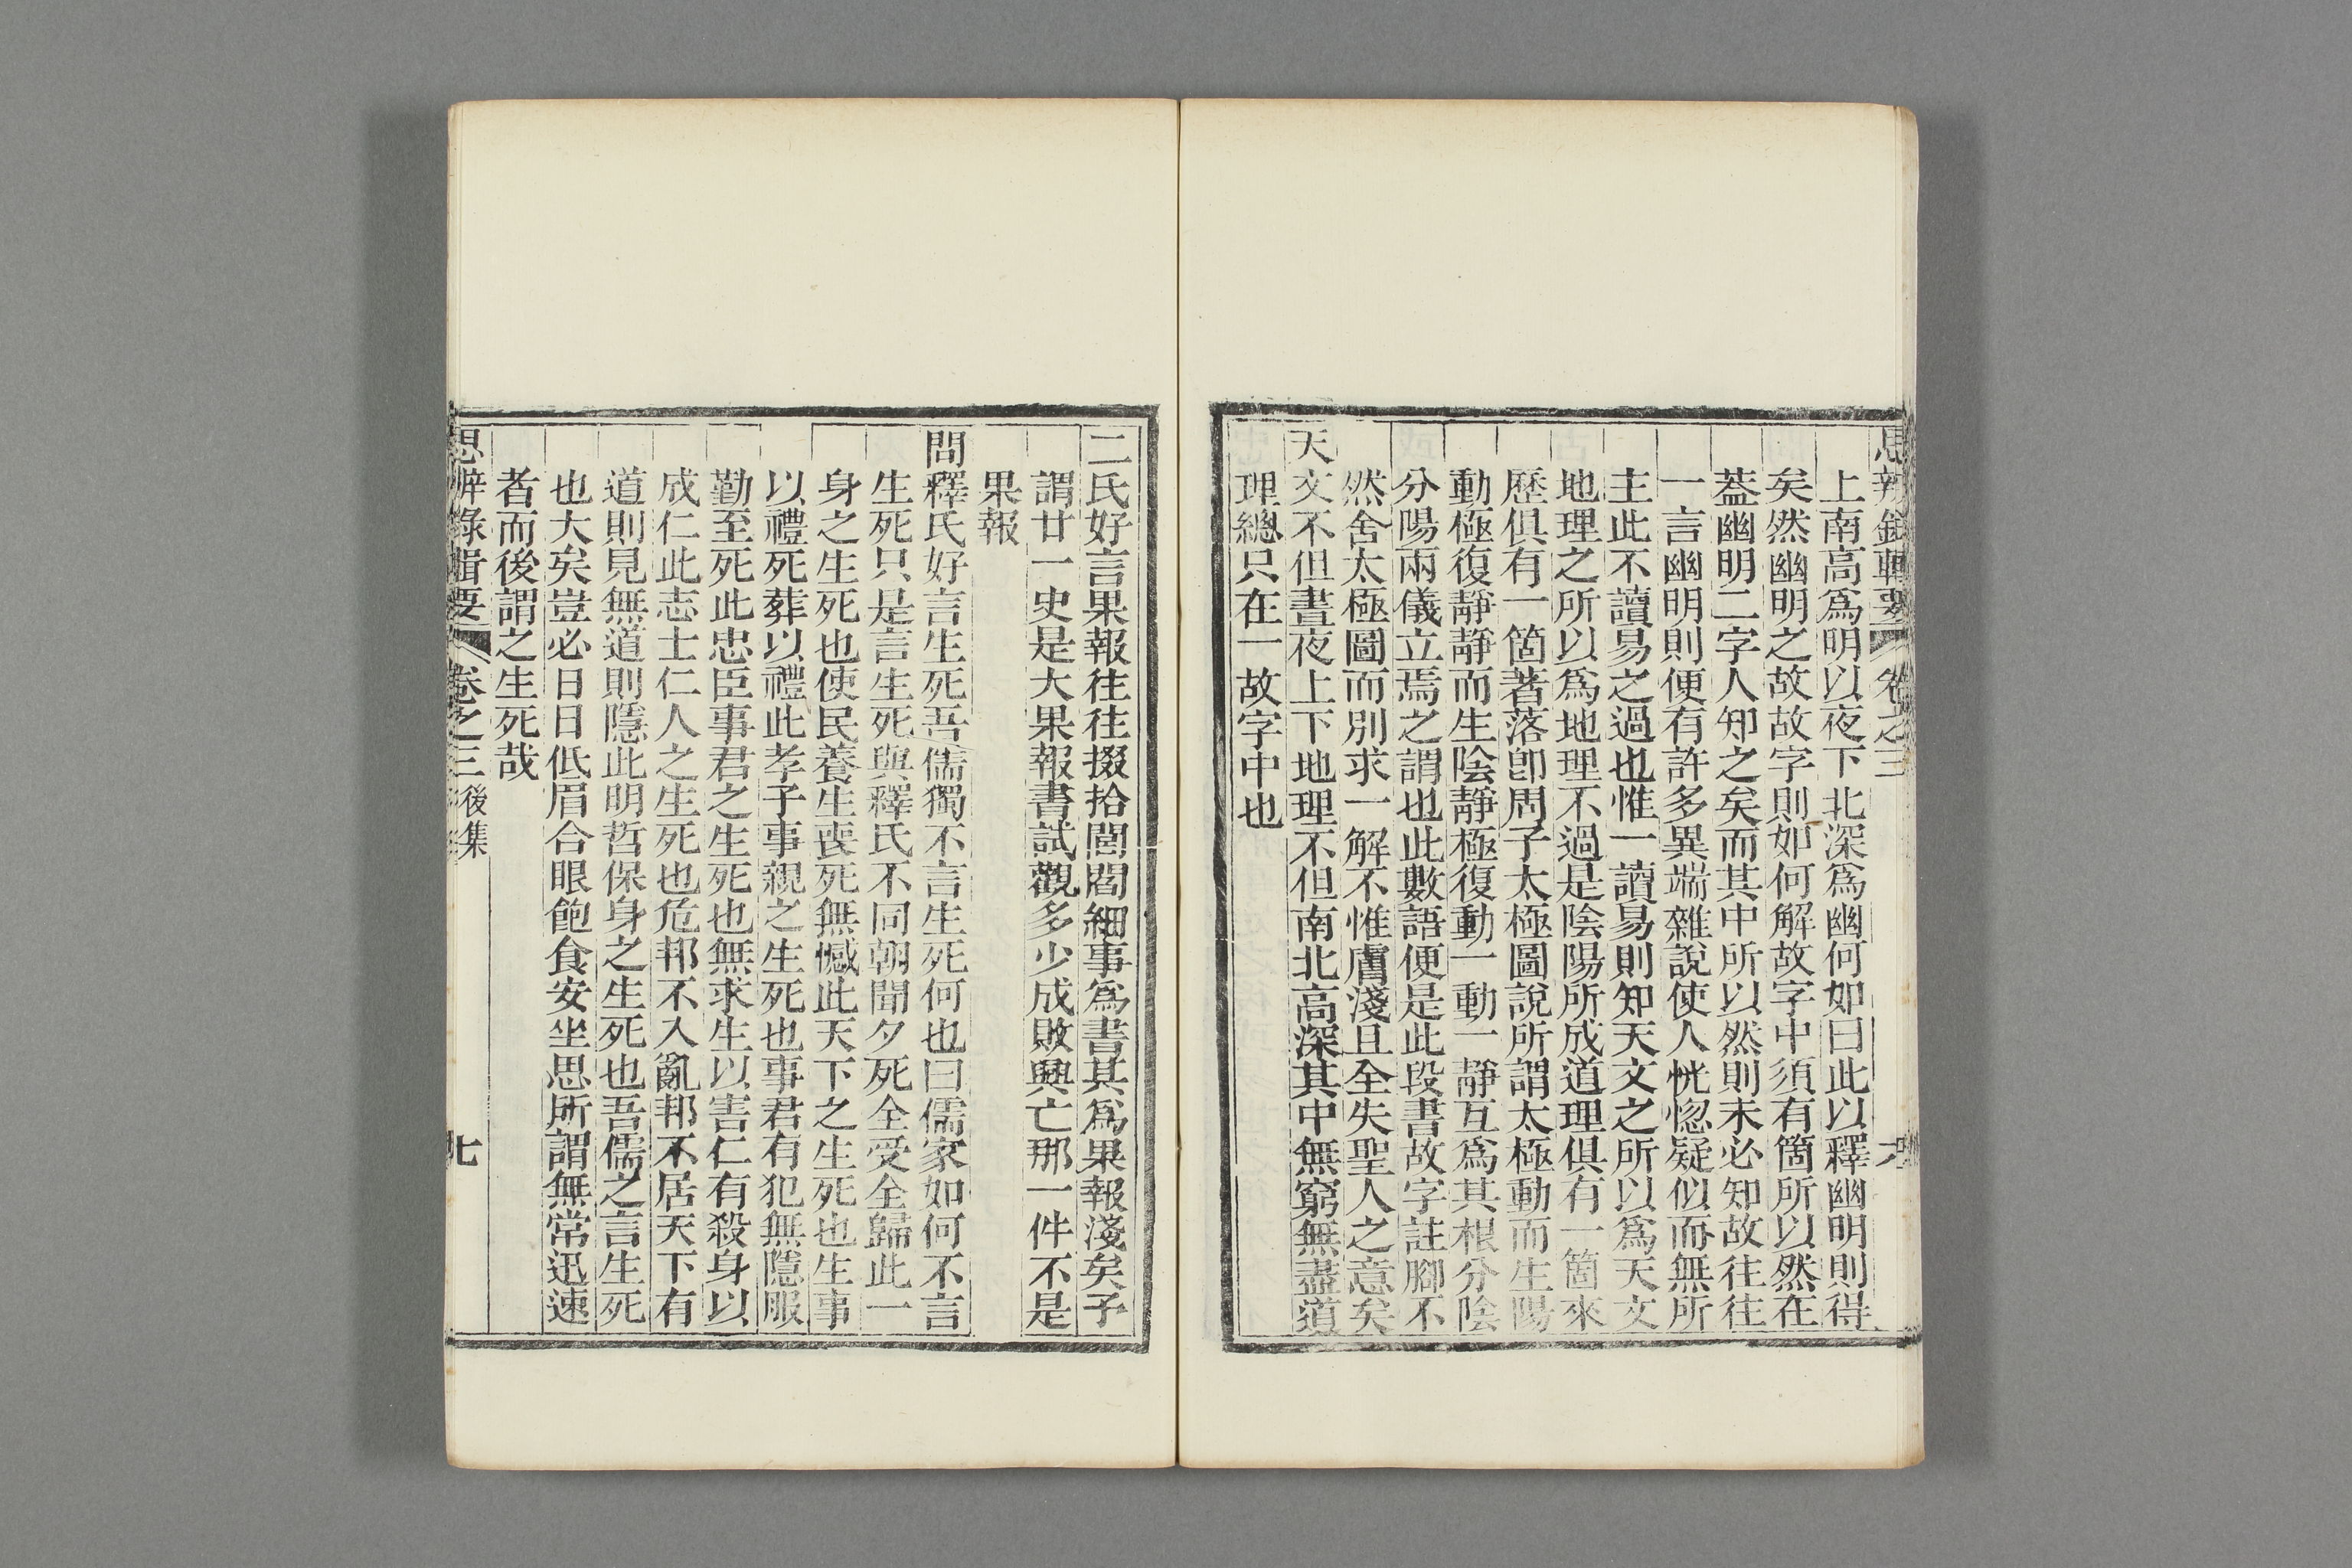 思辨錄輯要 卷之三
上南高爲明以夜下北深爲幽何如曰此以釋幽明則得
矣然幽明之故故字則如何解故字中須有箇所以然在
葢幽明二字人知之矣而其中所以然則未必知故往往
一言幽明則便有許多異端雜說使人恍惚疑似而無所
主此不讀易之過也惟一讀易則知天文之所以爲天文
地理之所以爲地理不過是陰陽所成道理俱有一箇來
歷俱有一箇著落卽周子太極圖說所謂太極動而生陽
動極復靜靜而生陰靜極復動一動一靜互爲其根分陰
分陽兩儀立焉之謂也此數語便是此段書故字註腳不
然舍太極圖而別求一解不惟膚淺且全失聖人之意矣
天文不但晝夜上下地理不但南北高深其中無窮無盡道
理總只在一故字中也
二氏好言果報往往掇拾閭閻細事爲書其爲果報淺矣予
謂廿一史是大果報書試觀多少成敗興亡那一件不是
果報
問釋氏好言生死吾儒獨不言生死何也曰儒家如何不言
生死只是言生死與釋氏不同朝聞夕死全受全歸此一
身之生死也使民養生喪死無憾此天下之生死也生事
以禮死葬以禮此孝子事親之生死也事君有犯無隱服
勤至死此忠臣事君之生死也無求生以害仁有殺身以
成仁此志士仁人之生死也危邦不入亂邦不居天下有
道則見無道則隱此明哲保身之生死也吾儒之言生死
也大矣豈必日日低眉合眼飽食安坐思所謂無常迅速
者而後謂之生死哉
思辨錄輯要 卷之三後集 七